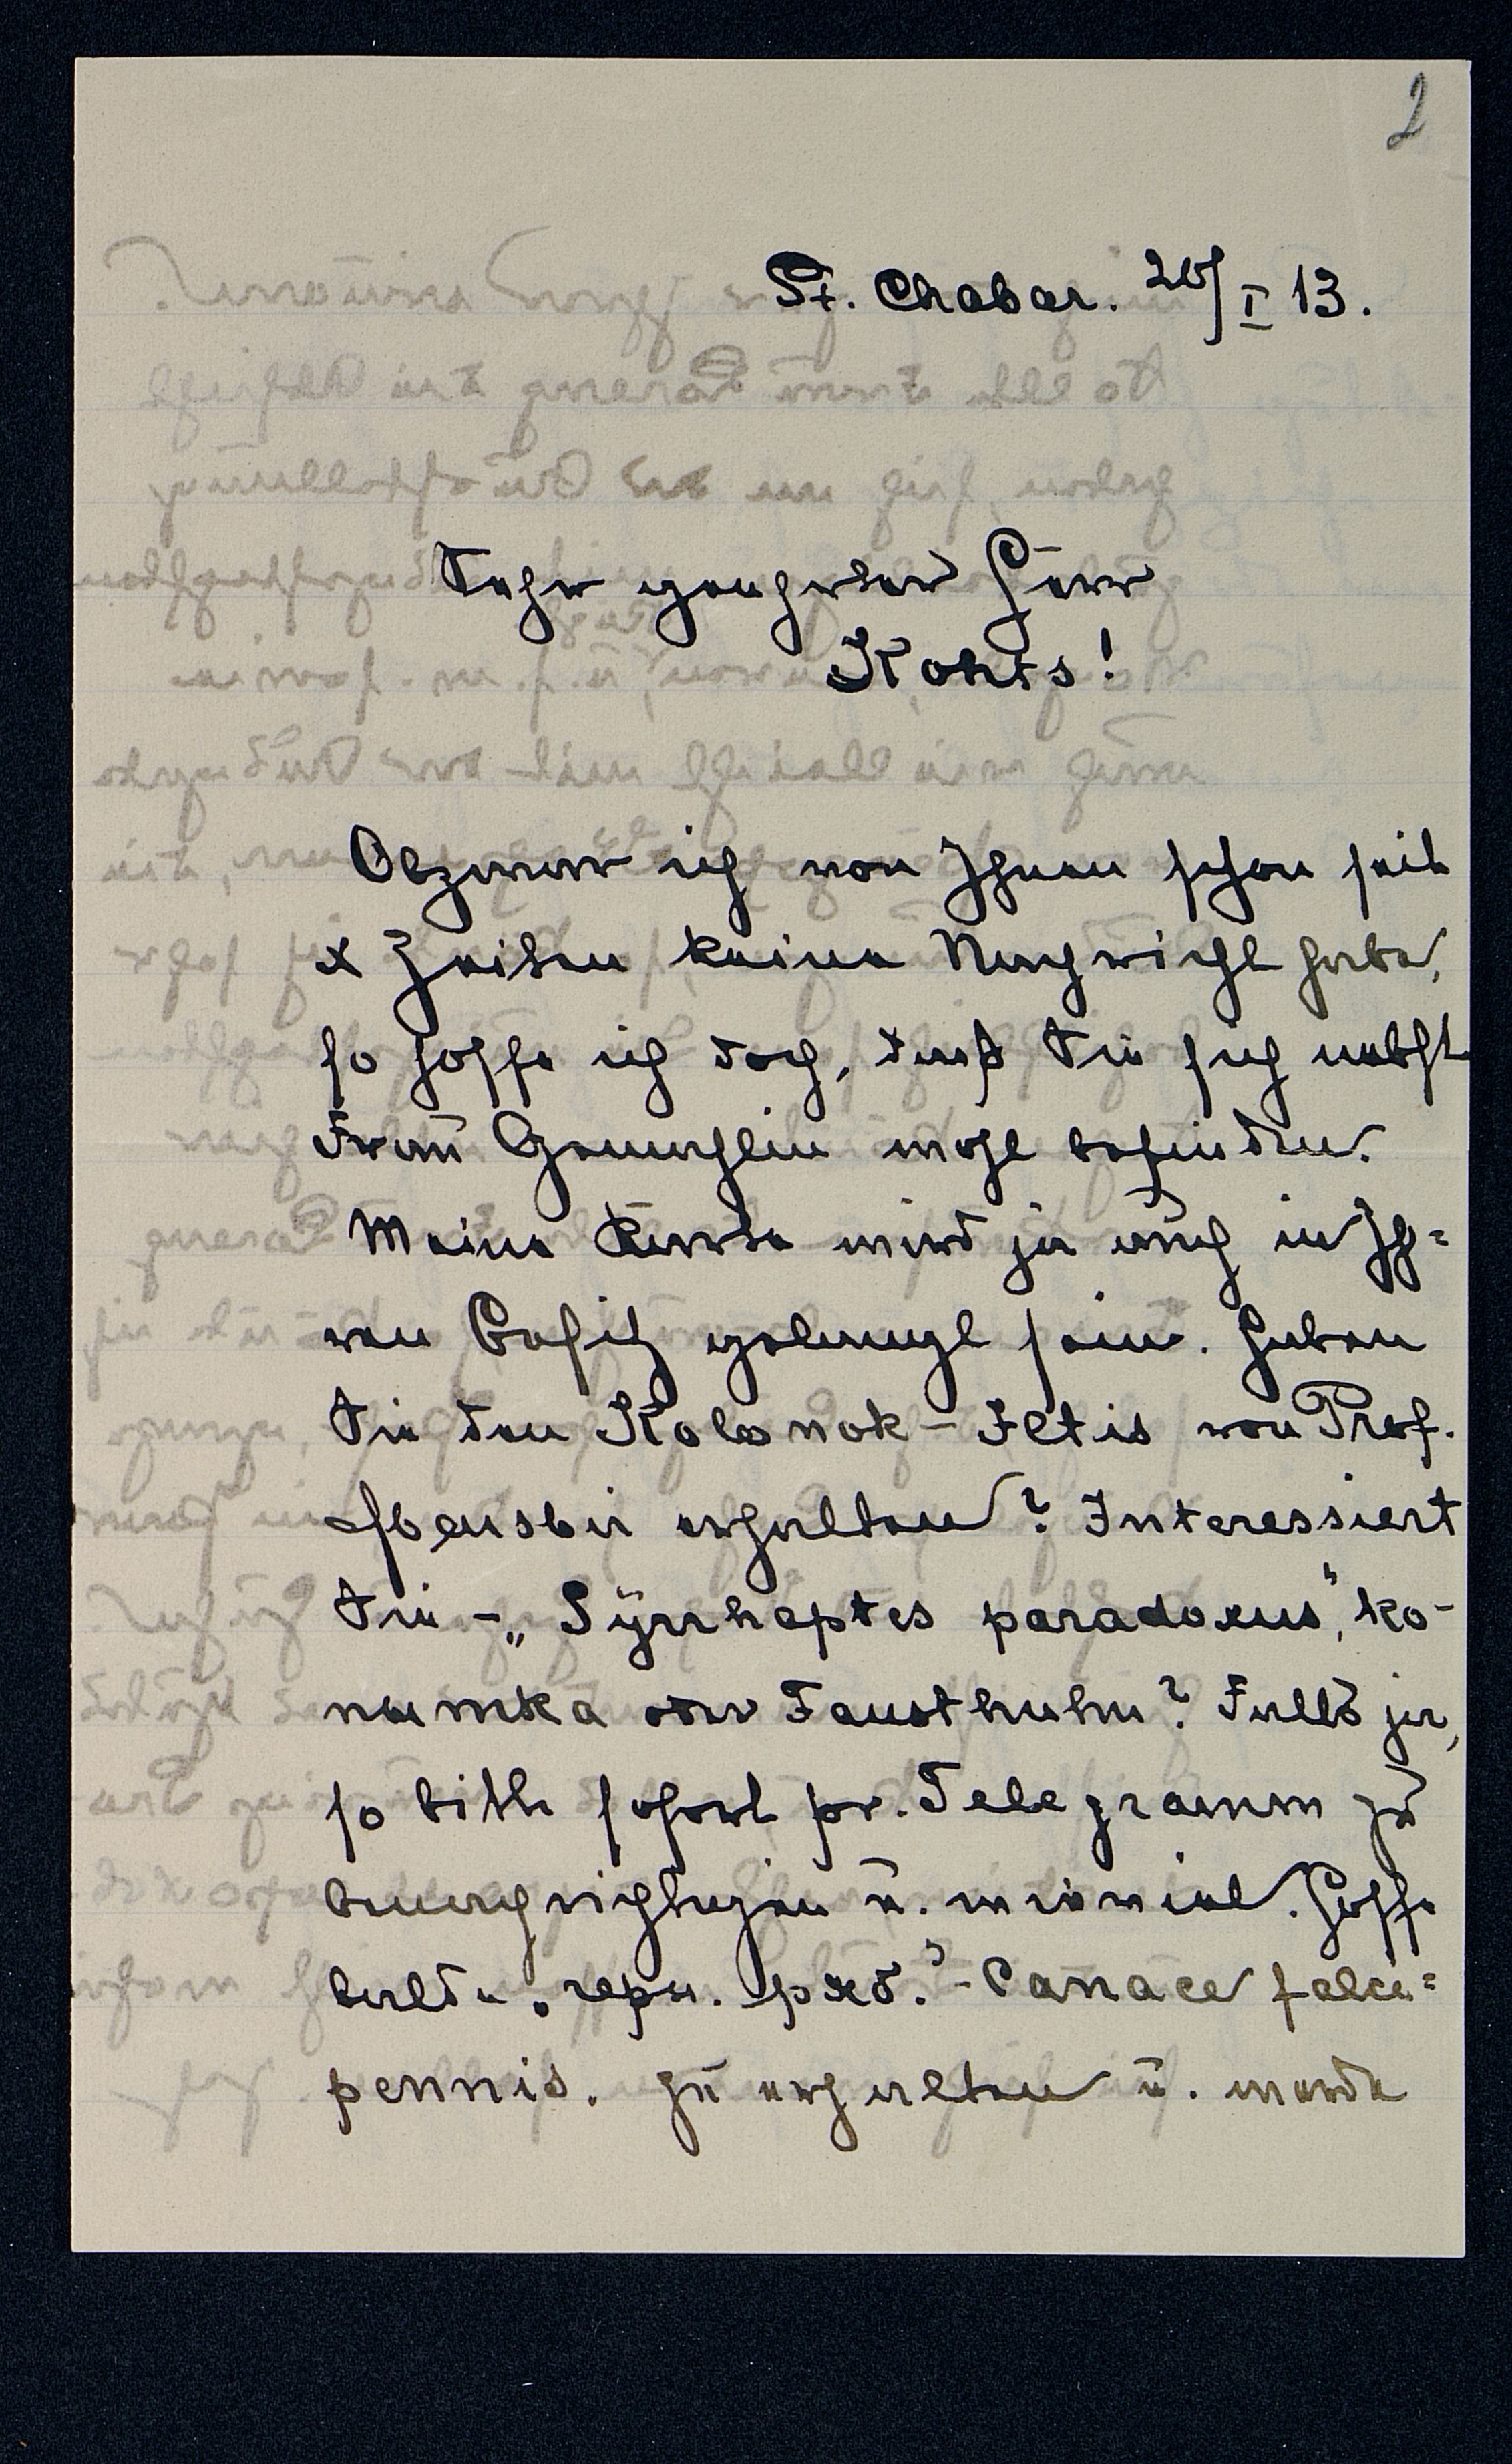 2
St. Chabar. 20/I 13.
Sehr geehrter Herr
Kohts!
Obzwar ich von Ihnen schon seit
x Zeiten keine Nachricht habe,
so hoffe ich doch, daß Sie sich nebst
Frau Gemahlin wohl befinden.
Meine Karte wird ja auch in Ih-
ren Besitz gelangt sein. Haben
Sie den Kolonok-Iltis von Prof.
erhalten? Interessiert
Sie - „Syrrhaptes paradoxus", ko-
oder Fausthuhn? Falls ja,
so bitte sofort pr. Telegramm zu
benachrichtigen u. wieviel. Hoffe
balde Canace falci-
pennis. zu erhalten u. werde